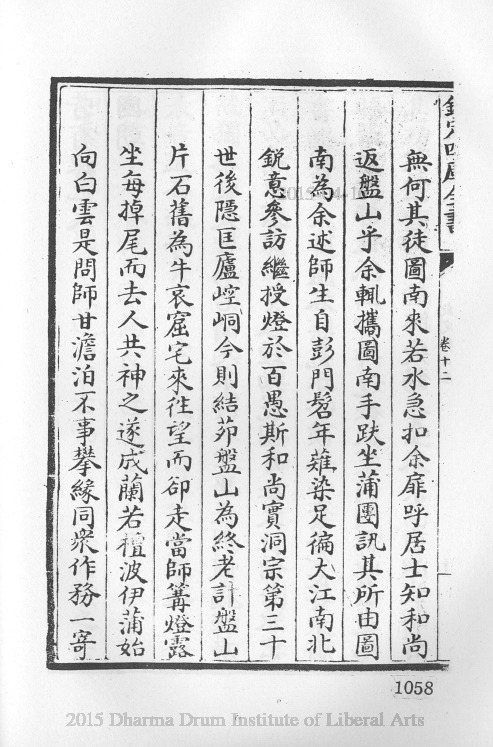 欽定四庫全書
卷十二
無何其徒圖南來若水急扣余扉呼居士知和尚
返盤山乎余輒攜圖南手趺坐蒲團訊其所由圖
南為余述師生自彭門髫年薙染足徧大江南北
銳意參訪繼授燈於百愚斯和尚實洞宗第三十
世後隱匡廬崆峒今則結茆盤山為終老計盤山
片石舊為牛哀窟宅來徃望而卻走當師篝燈露
坐每掉尾而去人共神之遂成蘭若檀波伊蒲始
向白雲是問師甘澹泊不事攀緣同衆作務一寄
1058
2015 Dharma Drum Institute of Liberal Arts